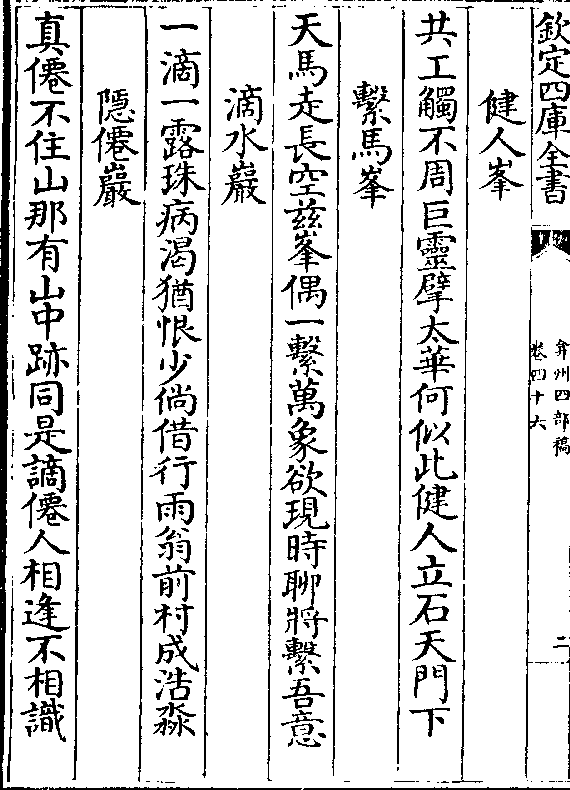 欽定四庫全書
弇州四部稿
卷四十六
二
健人峯
共工觸不周巨靈擘太華何似此健人立石天門下
繫馬峯
天馬走長空兹峯偶一繫萬象欲現時聊將繫吾意
滴水巖
一滴一露珠病渴猶恨少倘借行雨翁前村成浩淼
隠僊巖
真僊不住山那有山中跡同是謫僊人相逢不相識